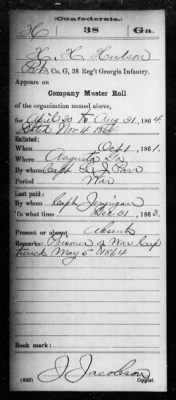 (Confederate.)
H 38 Ga.
H. H. Hudson
Pvt, Co. G, 38 Reg't Georgia Infantry.
Appears on
Company Muster Roll
of the organization named above,
for April 30 to Aug 31, 1864
dated Nov 4 1864
Enlisted:
When Oct 1, 186 1.
Where Augusta Ga
By whom Capt
Period War
Last paid:
By whom Capt Jernigan
To what time Dec 31, 186 3.
Present or absent Absent
Remarks: Prisoner of War Cap
tured May 5 1864
Book mark:
J. Jacobson
(642) Copyist.